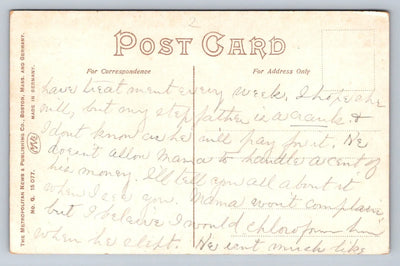 2
POST CARD
For Correspondence
For Address Only
have treatment every week. I hope she
will, but my step father is a crank &
I dont know as he will pay for it. He
doesn't allow Mama to handle a cent of
his money. I'll tell you all about it
when I see you. Mama wont complain
but I beleive I would chloroform him
when he slept. He isnt much like
THE METROPOLITAN NEWS & PUBLISHING CO., BOSTON, MASS. AND GERMANY.
MADE IN GERMANY.
No. G. 15 077.